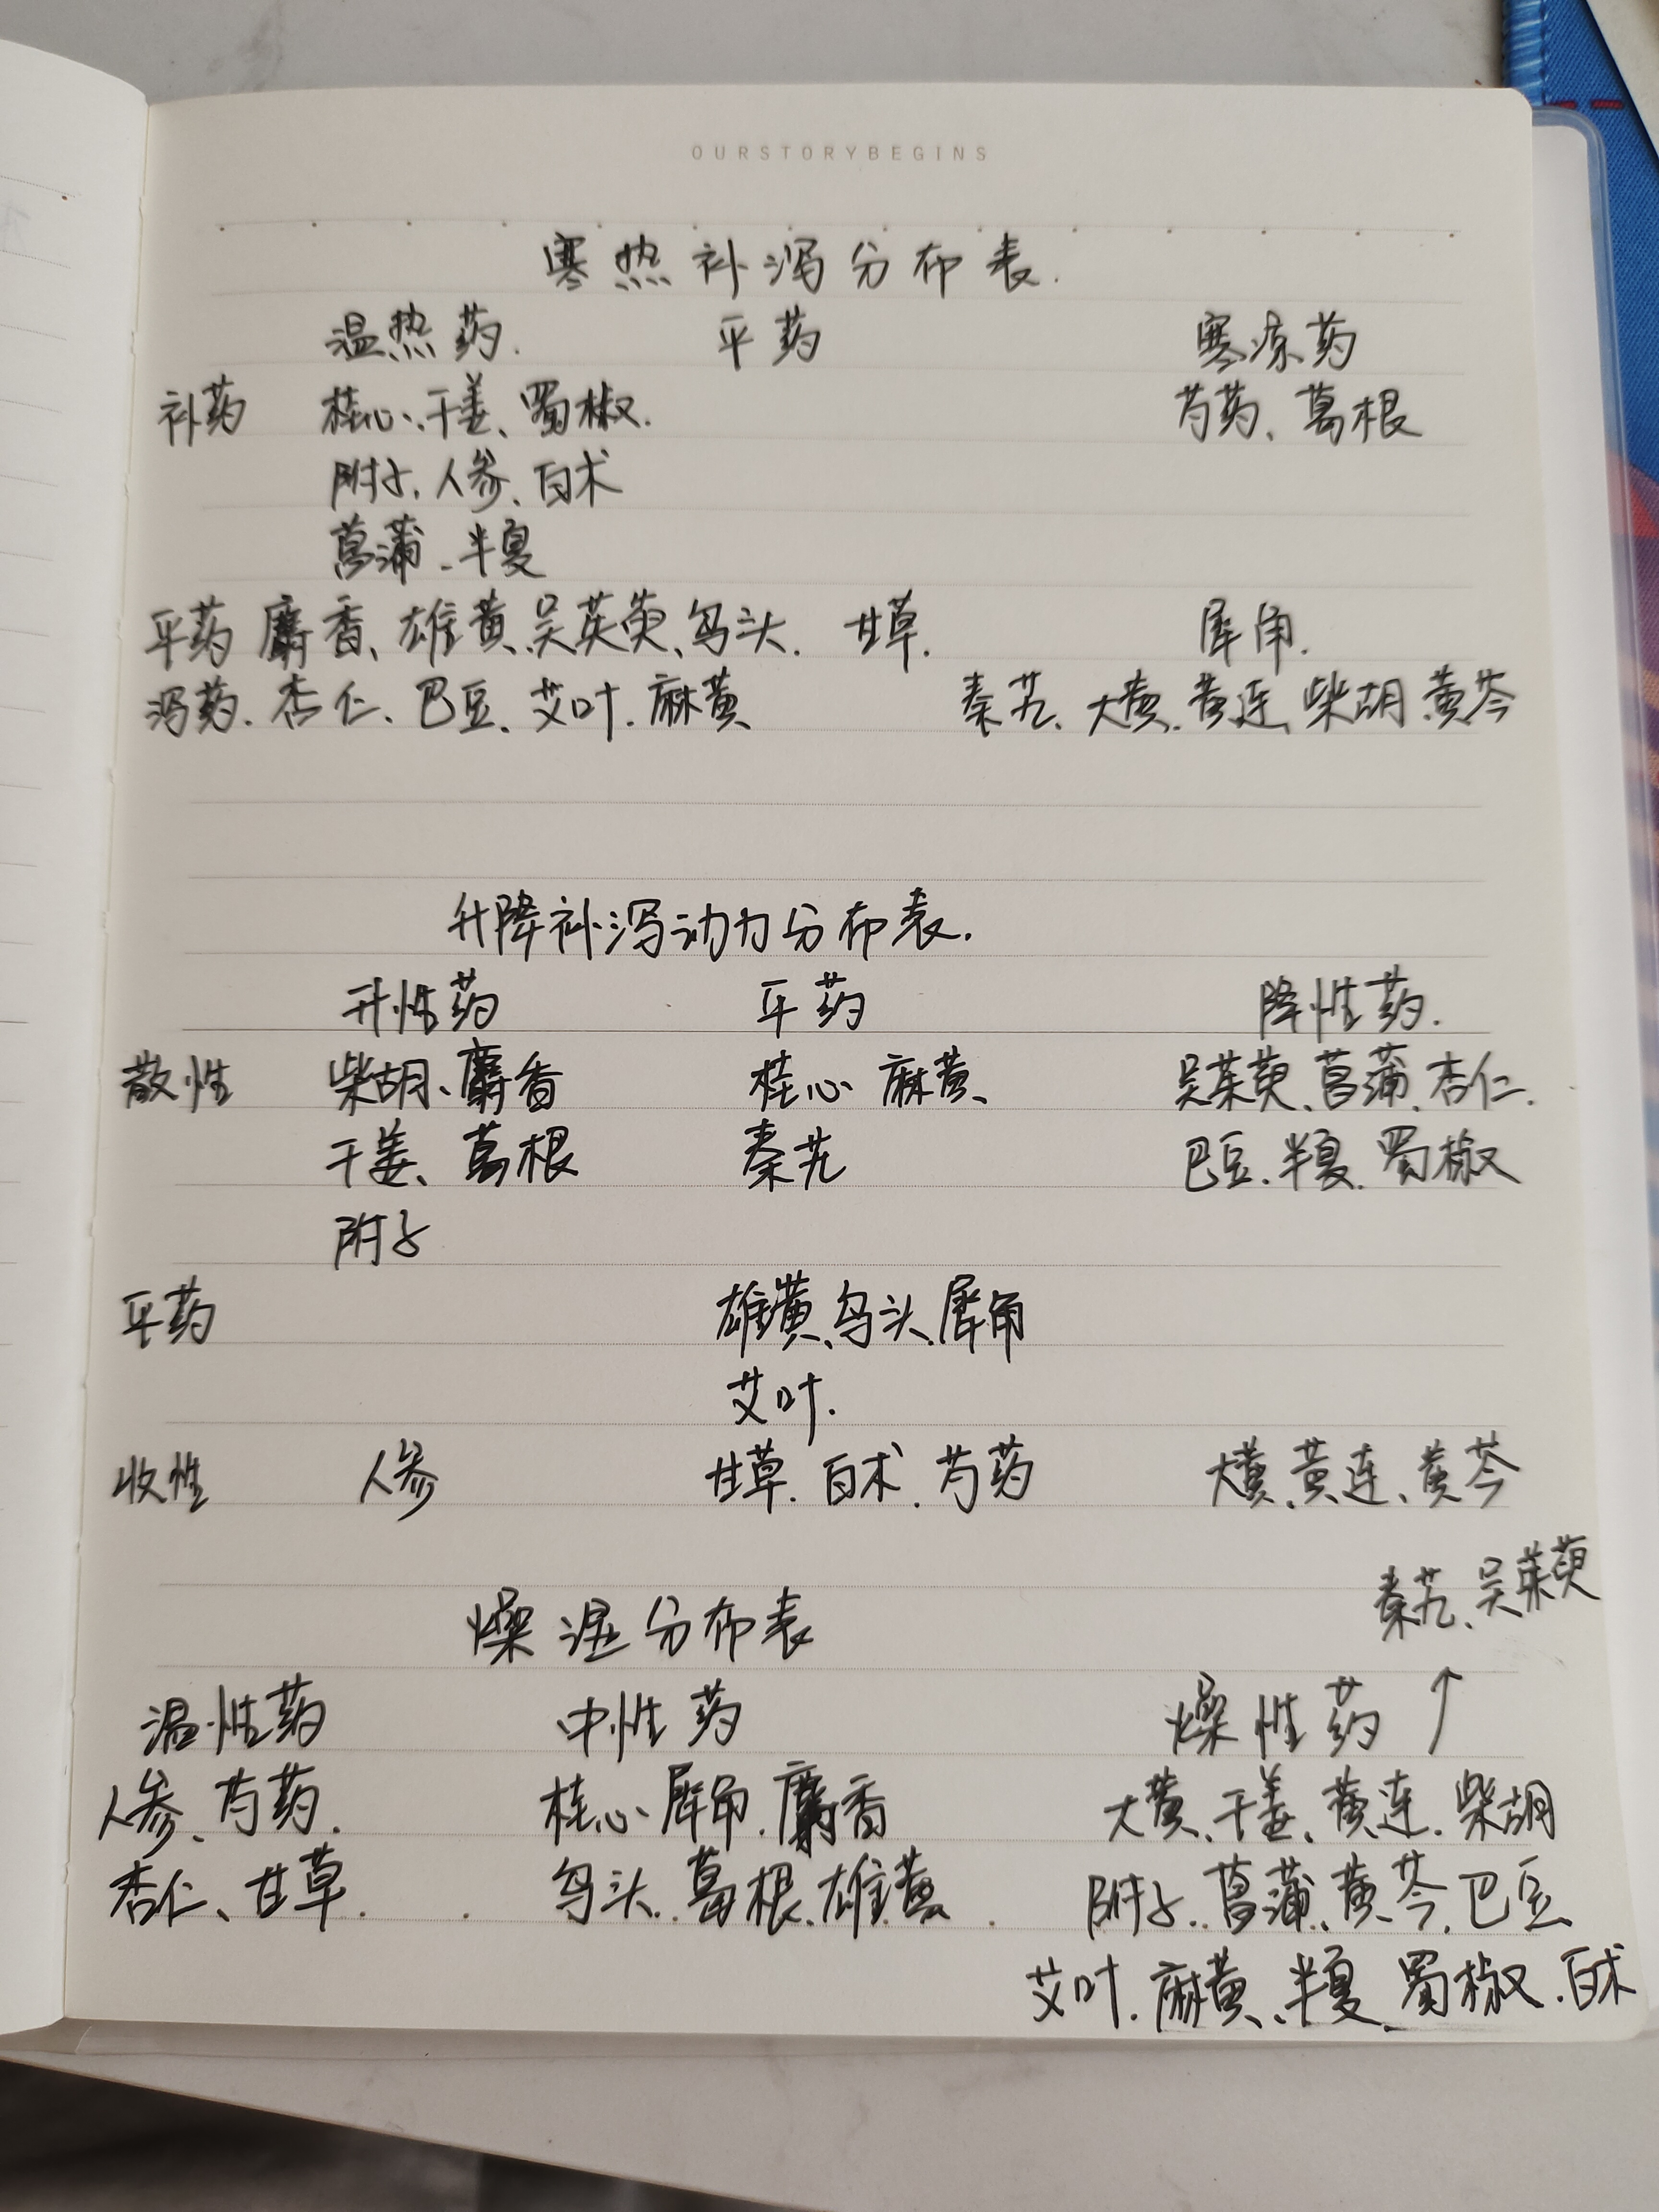 OURSTORYBEGINS
寒热补泻分布表.
温热药. 平药 寒凉药
补药 桂心、干姜、蜀椒. 芍药、葛根
附子、人参、白术
菖蒲、半夏
平药 麝香、雄黄、吴茱萸、乌头. 甘草. 犀角.
泻药. 杏仁、巴豆、艾叶. 麻黄 秦艽、大黄、黄连、柴胡 黄芩
升降补泻动力分布表.
升性药 平药 降性药.
散性 柴胡、麝香 桂心 麻黄、 吴茱萸、菖蒲、杏仁.
干姜、葛根 秦艽 巴豆.半夏.蜀椒
附子
平药 雄黄、乌头、犀角
艾叶.
收性 人参 甘草.白术.芍药 大黄、黄连、黄芩
秦艽、吴茱萸
燥湿分布表
温性药 中性药 燥性药 ↑
人参、芍药. 桂心、犀角.麝香 大黄、干姜、黄连.柴胡
杏仁、甘草. 乌头.葛根.雄黄 附子.菖蒲、黄芩.巴豆
艾叶.麻黄、半夏.蜀椒.白术